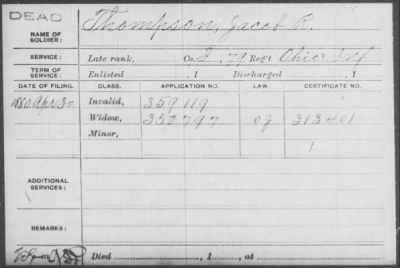 DEAD
NAME OF SOLDIER: Thompson, Jacob R.
SERVICE: Late rank, Co. I, 79 Reg't Ohio Inf
TERM OF SERVICE: Enlisted , 1 Discharged , 1
DATE OF FILING. CLASS. APPLICATION NO. LAW. CERTIFICATE NO.
1880 Apr 30 Invalid, 359119
Widow, 353797 313401
Minor, 1
ADDITIONAL SERVICES:
REMARKS:
Died , 1 , at